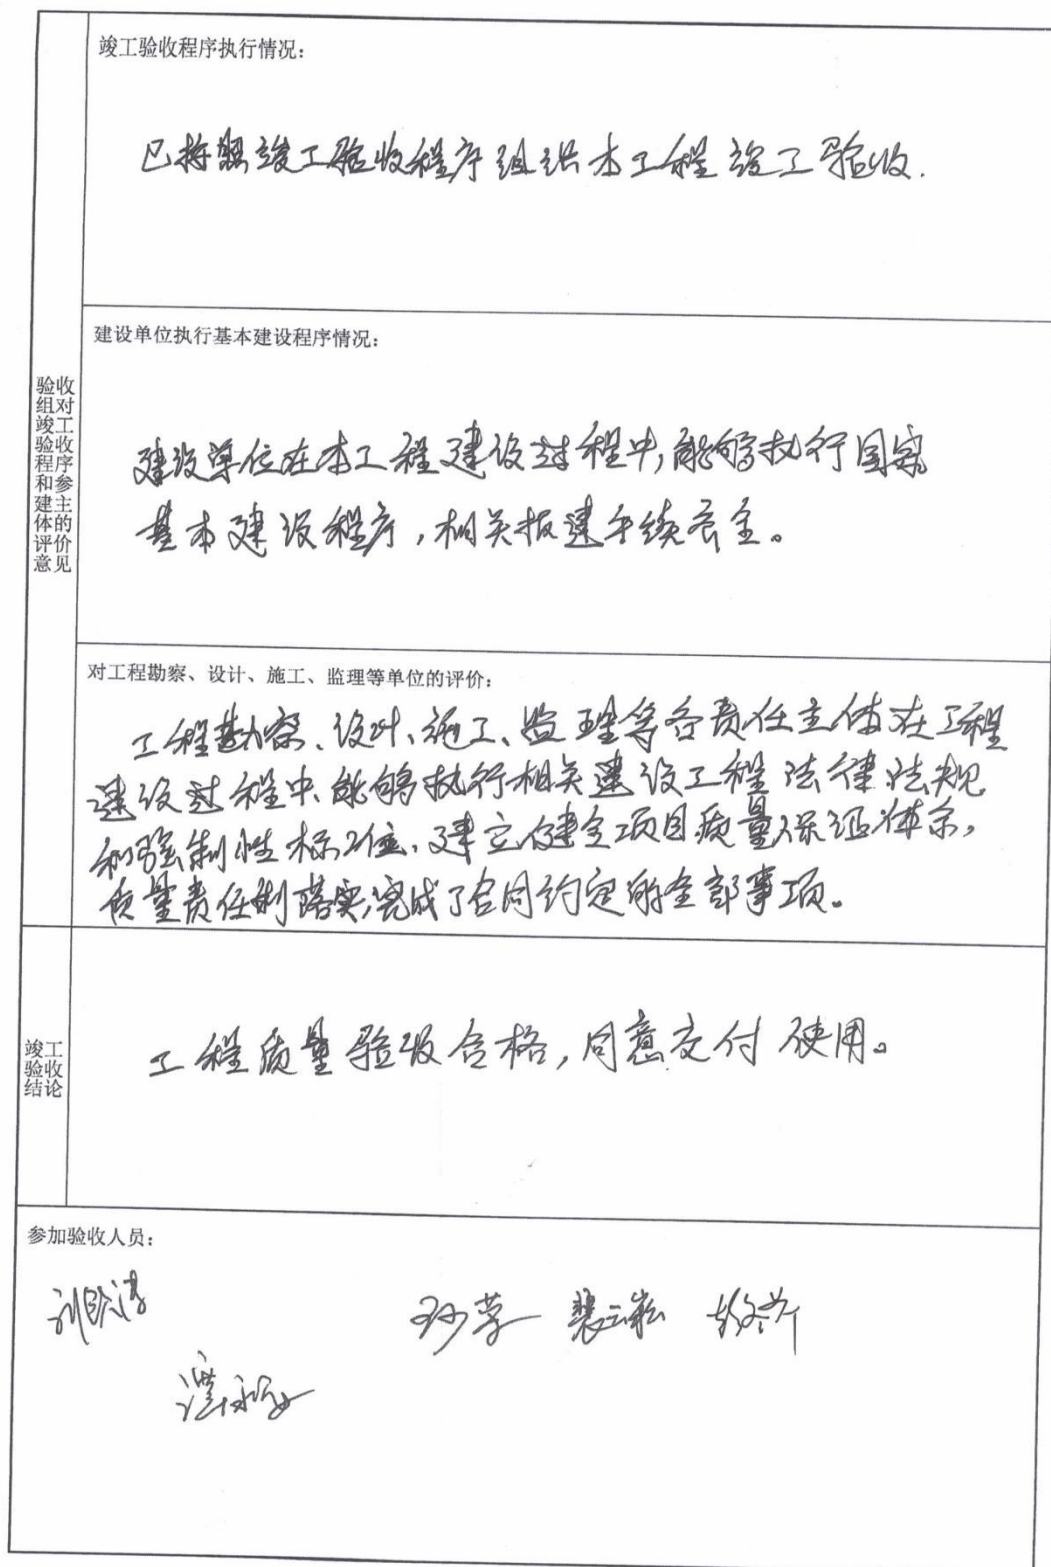 竣工验收程序执行情况：
已按照竣工验收程序组织本工程竣工验收.
验收
组对
竣工
验收
程序
和参
建主
体的
评价
意见
建设单位执行基本建设程序情况：
建设单位在本工程建设过程中,能够执行国家
基本建设程序,相关报建手续齐全。
对工程勘察、设计、施工、监理等单位的评价：
工程勘察、设计、施工、监理等各责任主体在工程
建设过程中、能够执行相关建设工程法律法规
和强制性标准、建立健全项目质量保证体系,
质量责任制落实,完成了合同约定的全部事项。
竣工
验收
结论
工程质量验收合格,同意交付使用。
参加验收人员：